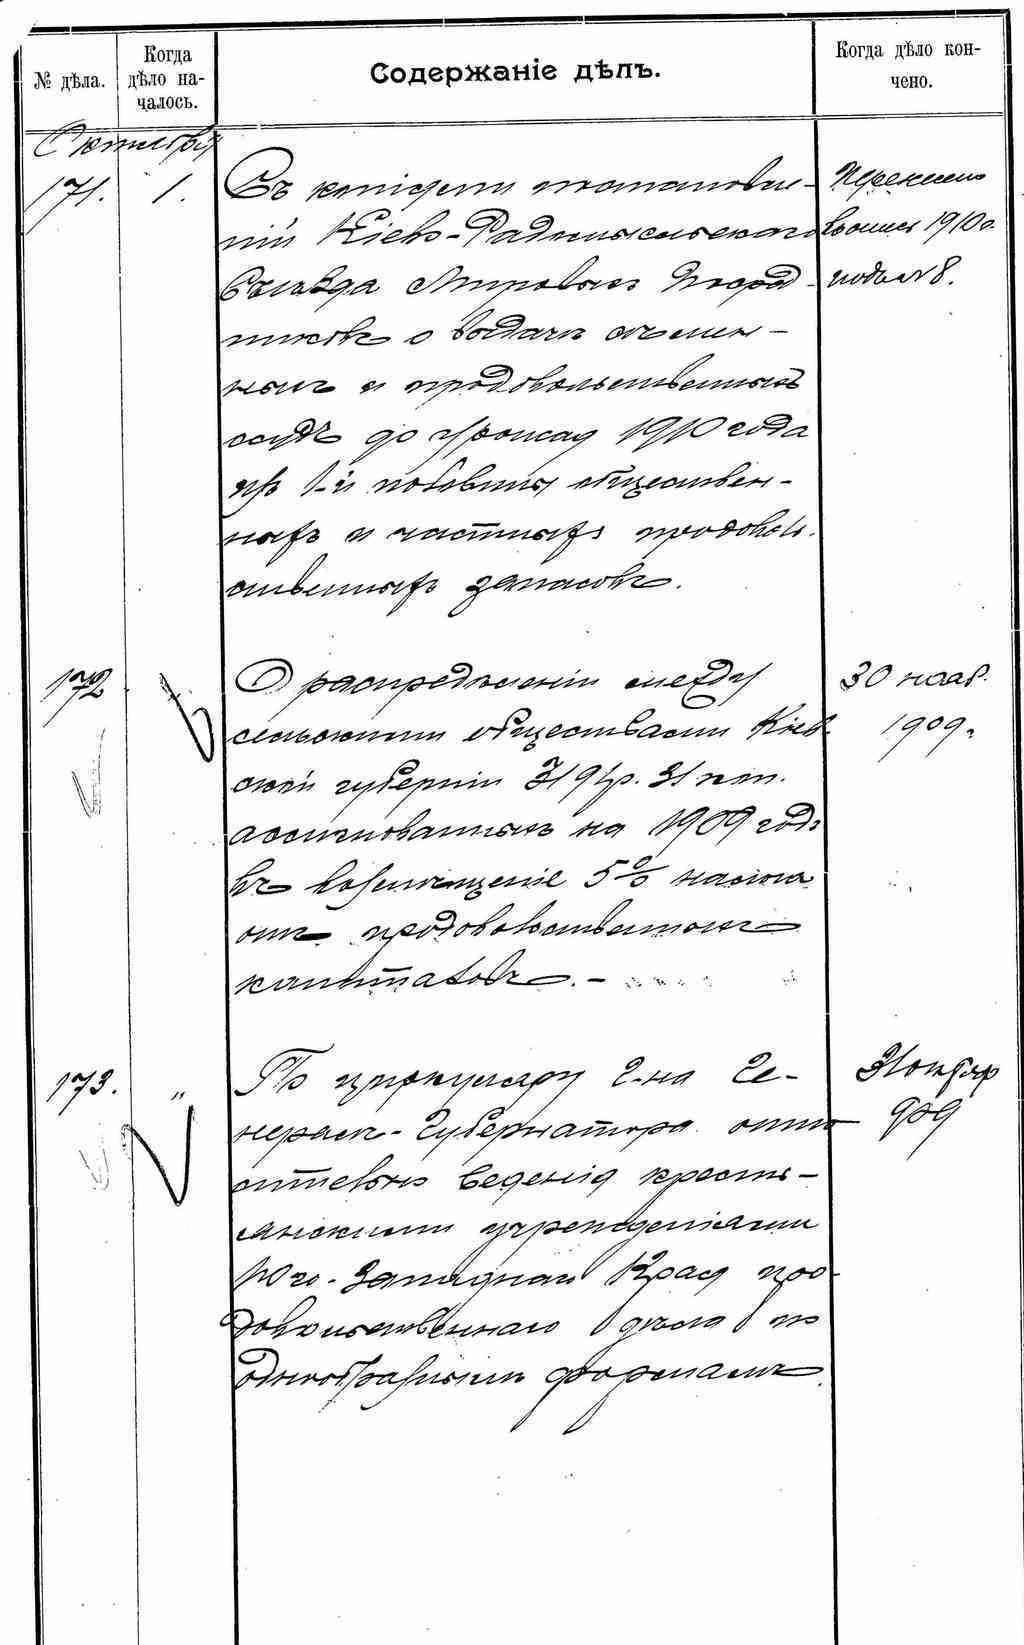 № дѣла.
Когда
дѣло на-
чалось.
Содержаніе дѣлъ.
Когда дѣло кон-
чено.
Октября
171.
1.
Съ копіями постановле-
ній Кіево-Радомысльскаго
Съѣзда Мировыхъ Посред-
никовъ о выдачѣ сѣмен-
ныхъ и продовольственныхъ
ссудъ до урожая 1910 года
изъ 1-й половины обществен-
ныхъ и частныхъ продоволь-
ственныхъ запасовъ.
въ опись 1910 г.
подъ № 8.
172
О распредѣленіи между
сельскими обществами Кіев-
ской губерніи 319 р. 31 коп.
ассигнованныхъ на 1909 годъ
въ возмѣщеніе 5%
продовольственныхъ
капиталовъ. -
30 нояб.
1909 г.
173.
"
По циркуляру Г-на Ге-
нералъ-Губернатора относ
ведения кресть-
янскими учрежденіями
Юго-Западнаго Края про-
довольственнаго дѣла по
однообразнымъ формамъ.
31 октяр
909